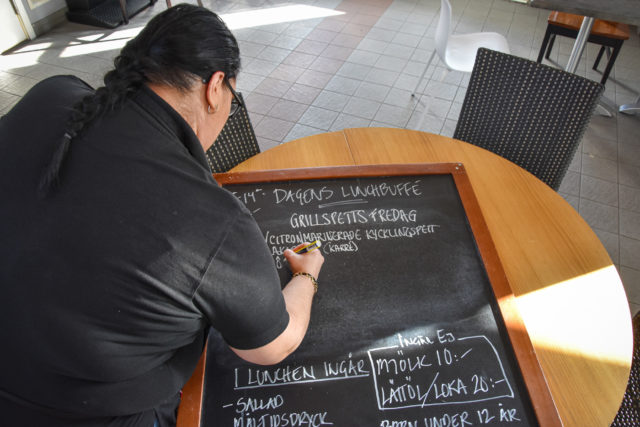 -14:- DAGENS LUNCHBUFFÉ
GRILLSPETTSFREDAG
CITRONMARINERADE KYCKLINGSPETT
(KARRÉ)
I LUNCHEN INGÅR
- SALLAD
MÅLTIDSDRYCK
INGÅR EJ
MJÖLK 10:-
LÄTTÖL/LOKA 20:-
BARN UNDER 12 ÅR